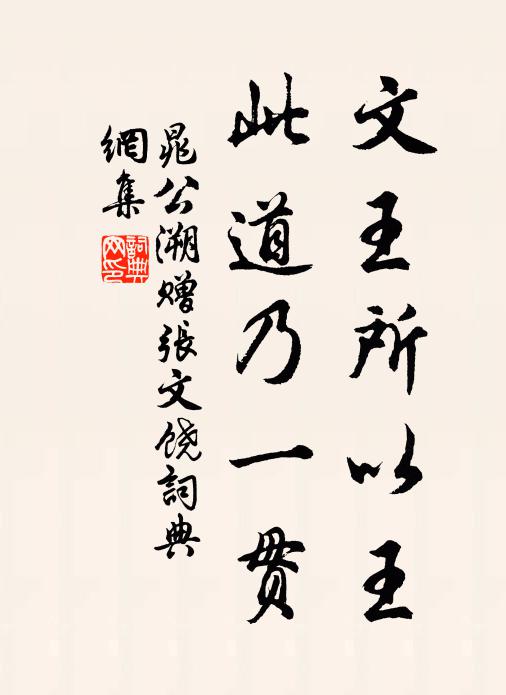 文王所以王
此道乃一贯
晁公溯赠張文饶詞典
網集
詞典
网印